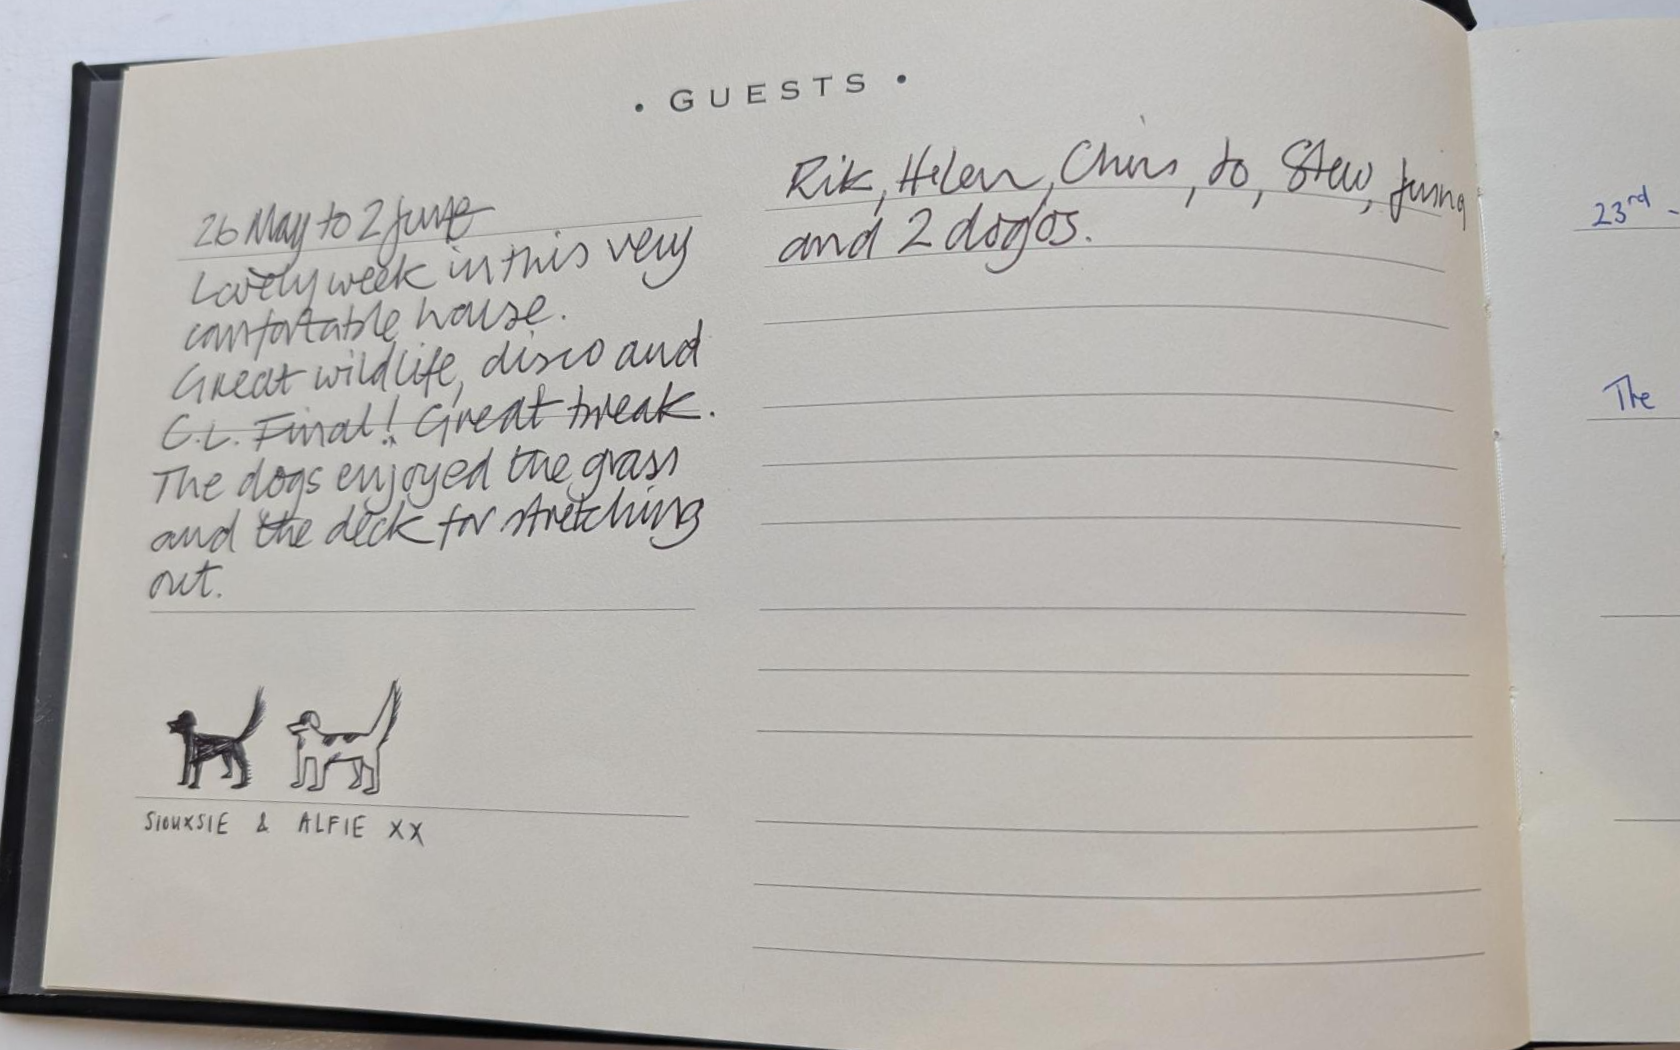 • GUESTS •
26 May to 2 June
Lovely week in this very
comfortable house.
Great wildlife, disco and
C.L. Final! Great break.
The dogs enjoyed the grass
and the deck for stretching
out.
SIOUXSIE & ALFIE XX
Rik, Helen, Chris, Jo, Stew,
and 2 doggos.
23rd -
The